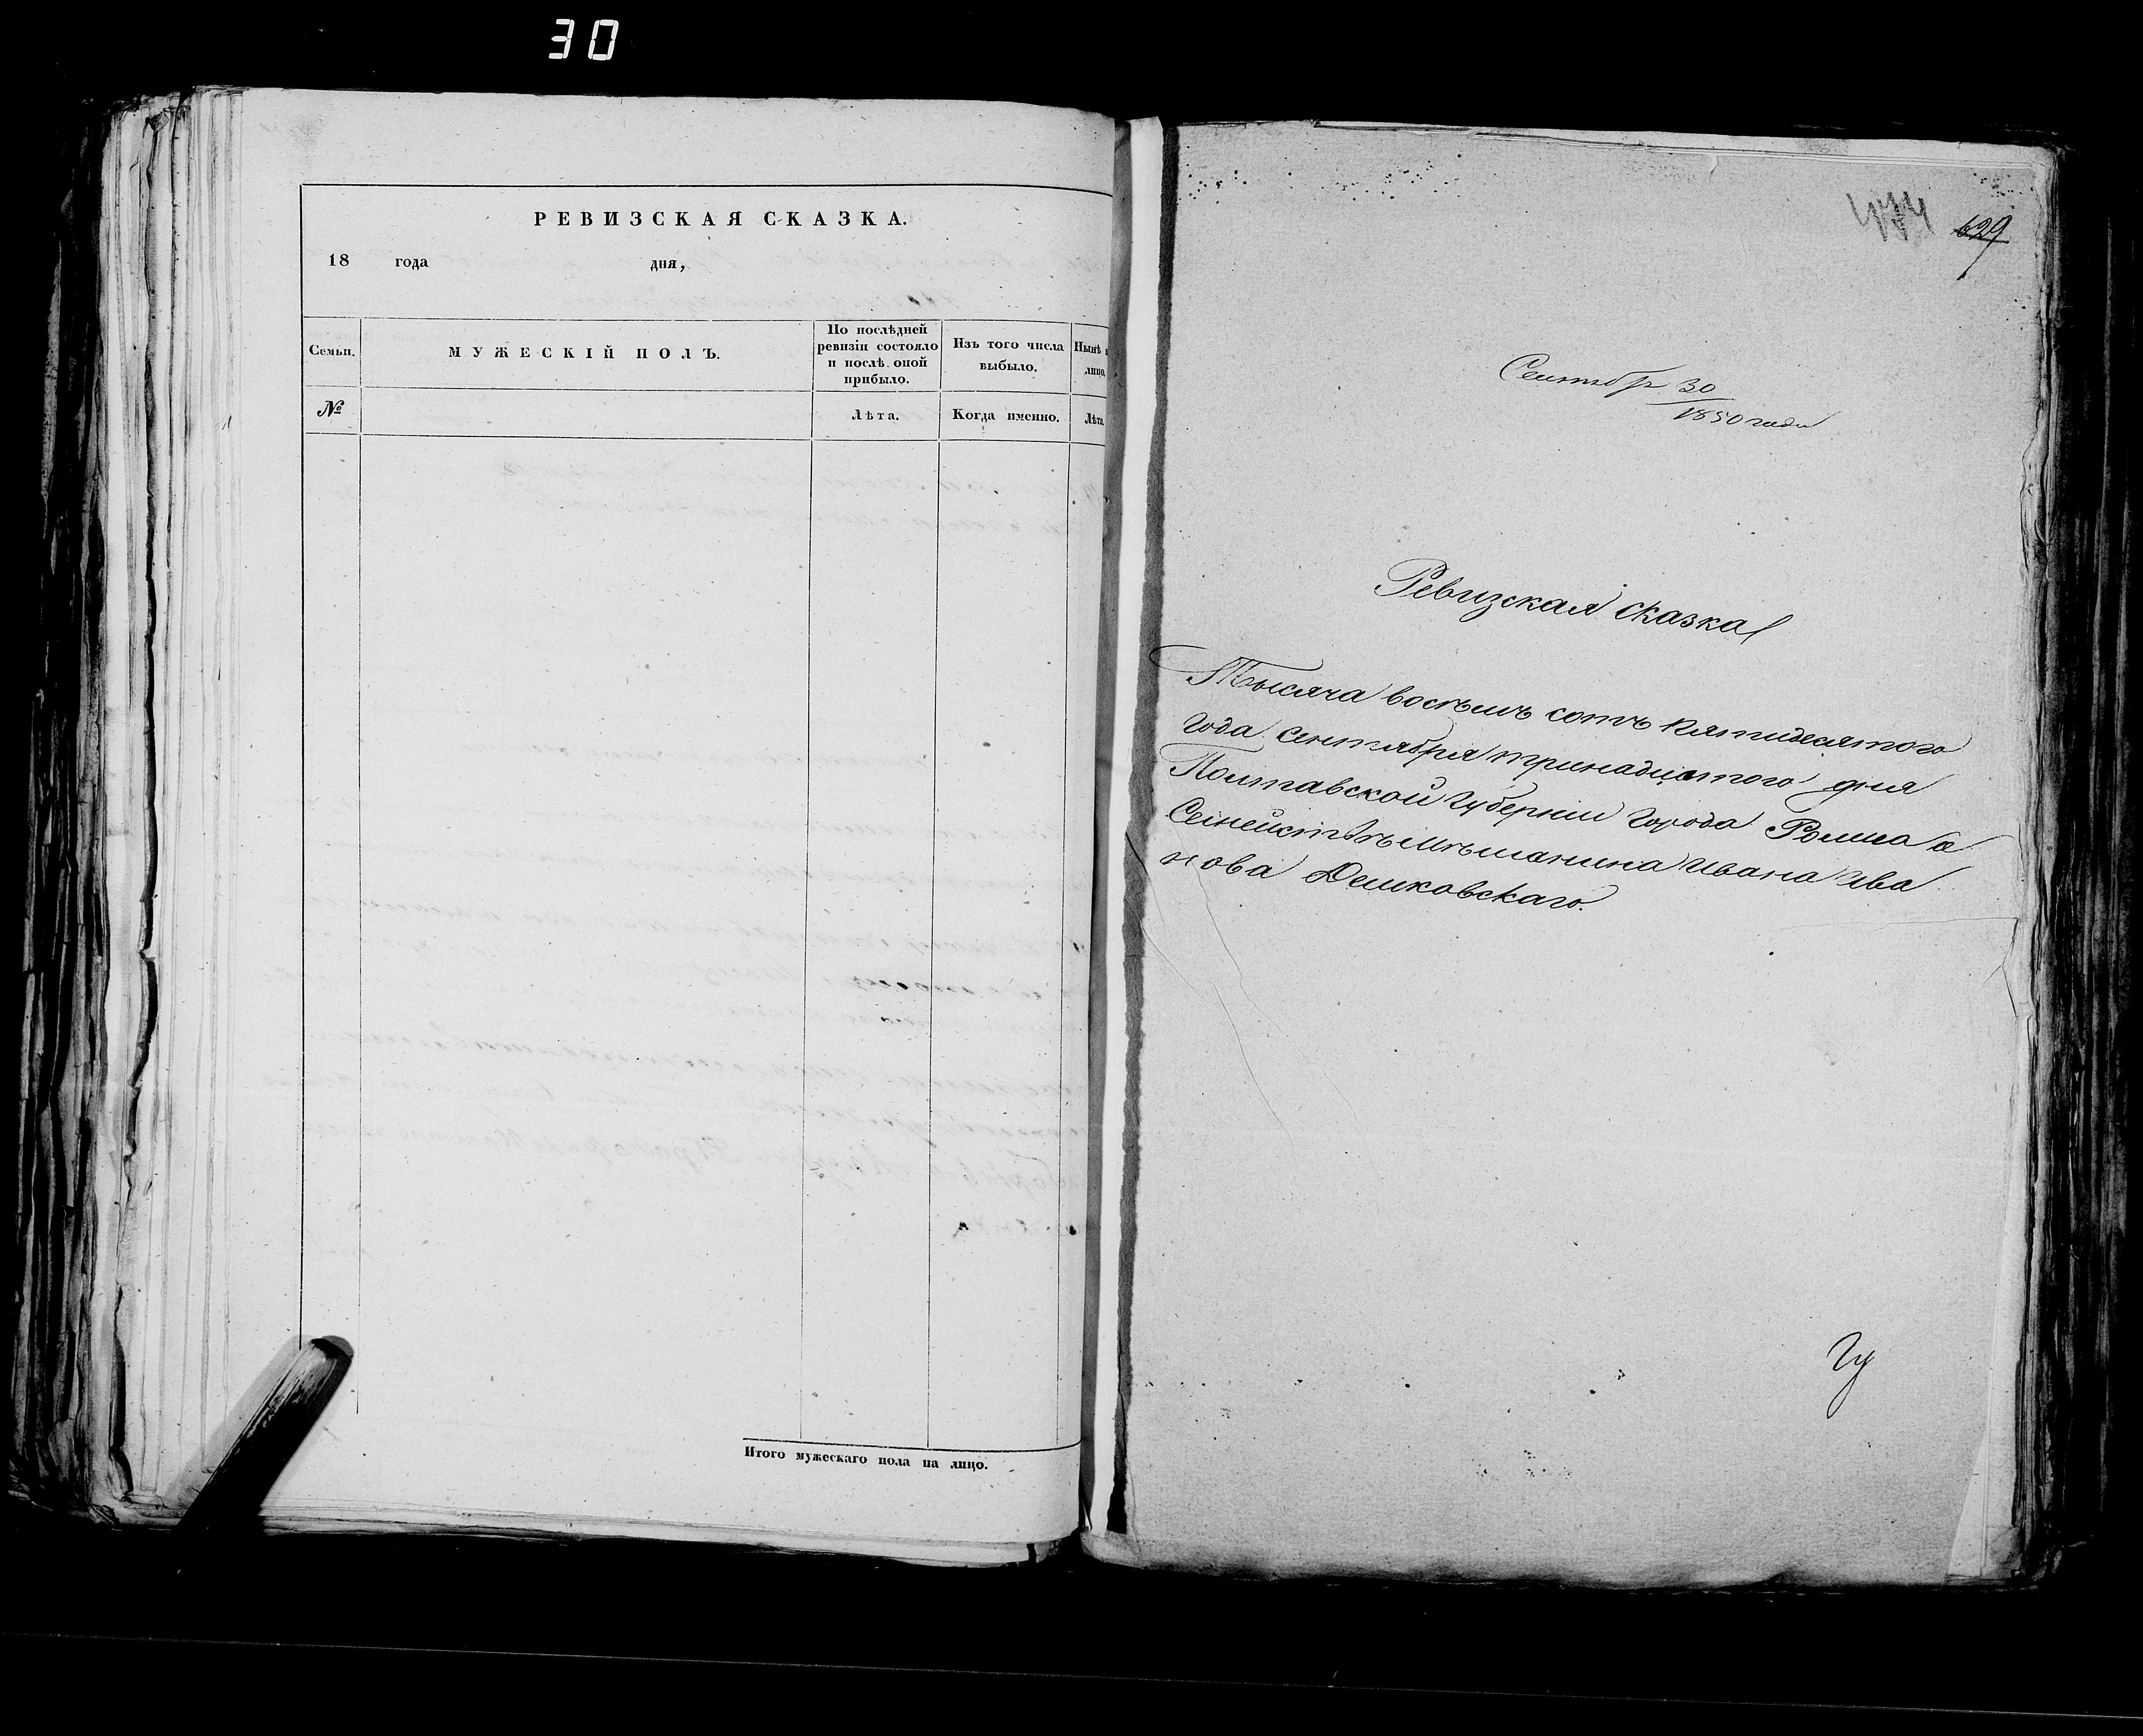 30
РЕВИЗСКАЯ СКАЗКА.
18 года дня,
Семьи.
МУЖЕСКІЙ ПОЛЪ.
По послѣдней
ревизіи состояло
и послѣ оной
прибыло.
Изъ того числа
выбыло.
Нынѣ
лицо.
№
Лѣта.
Когда именно.
Лѣта.
Итого мужескаго пола на лицо.
474 629
Сентябр 30
1850 года
Ревизская сказка
Тысяча восемъ сотъ пятидесятого
года сентября тринадцатого дня
Полтавской губерніи города Ромна о
Семействѣ мѣщанина Ивана Ива
нова Дешковскаго.